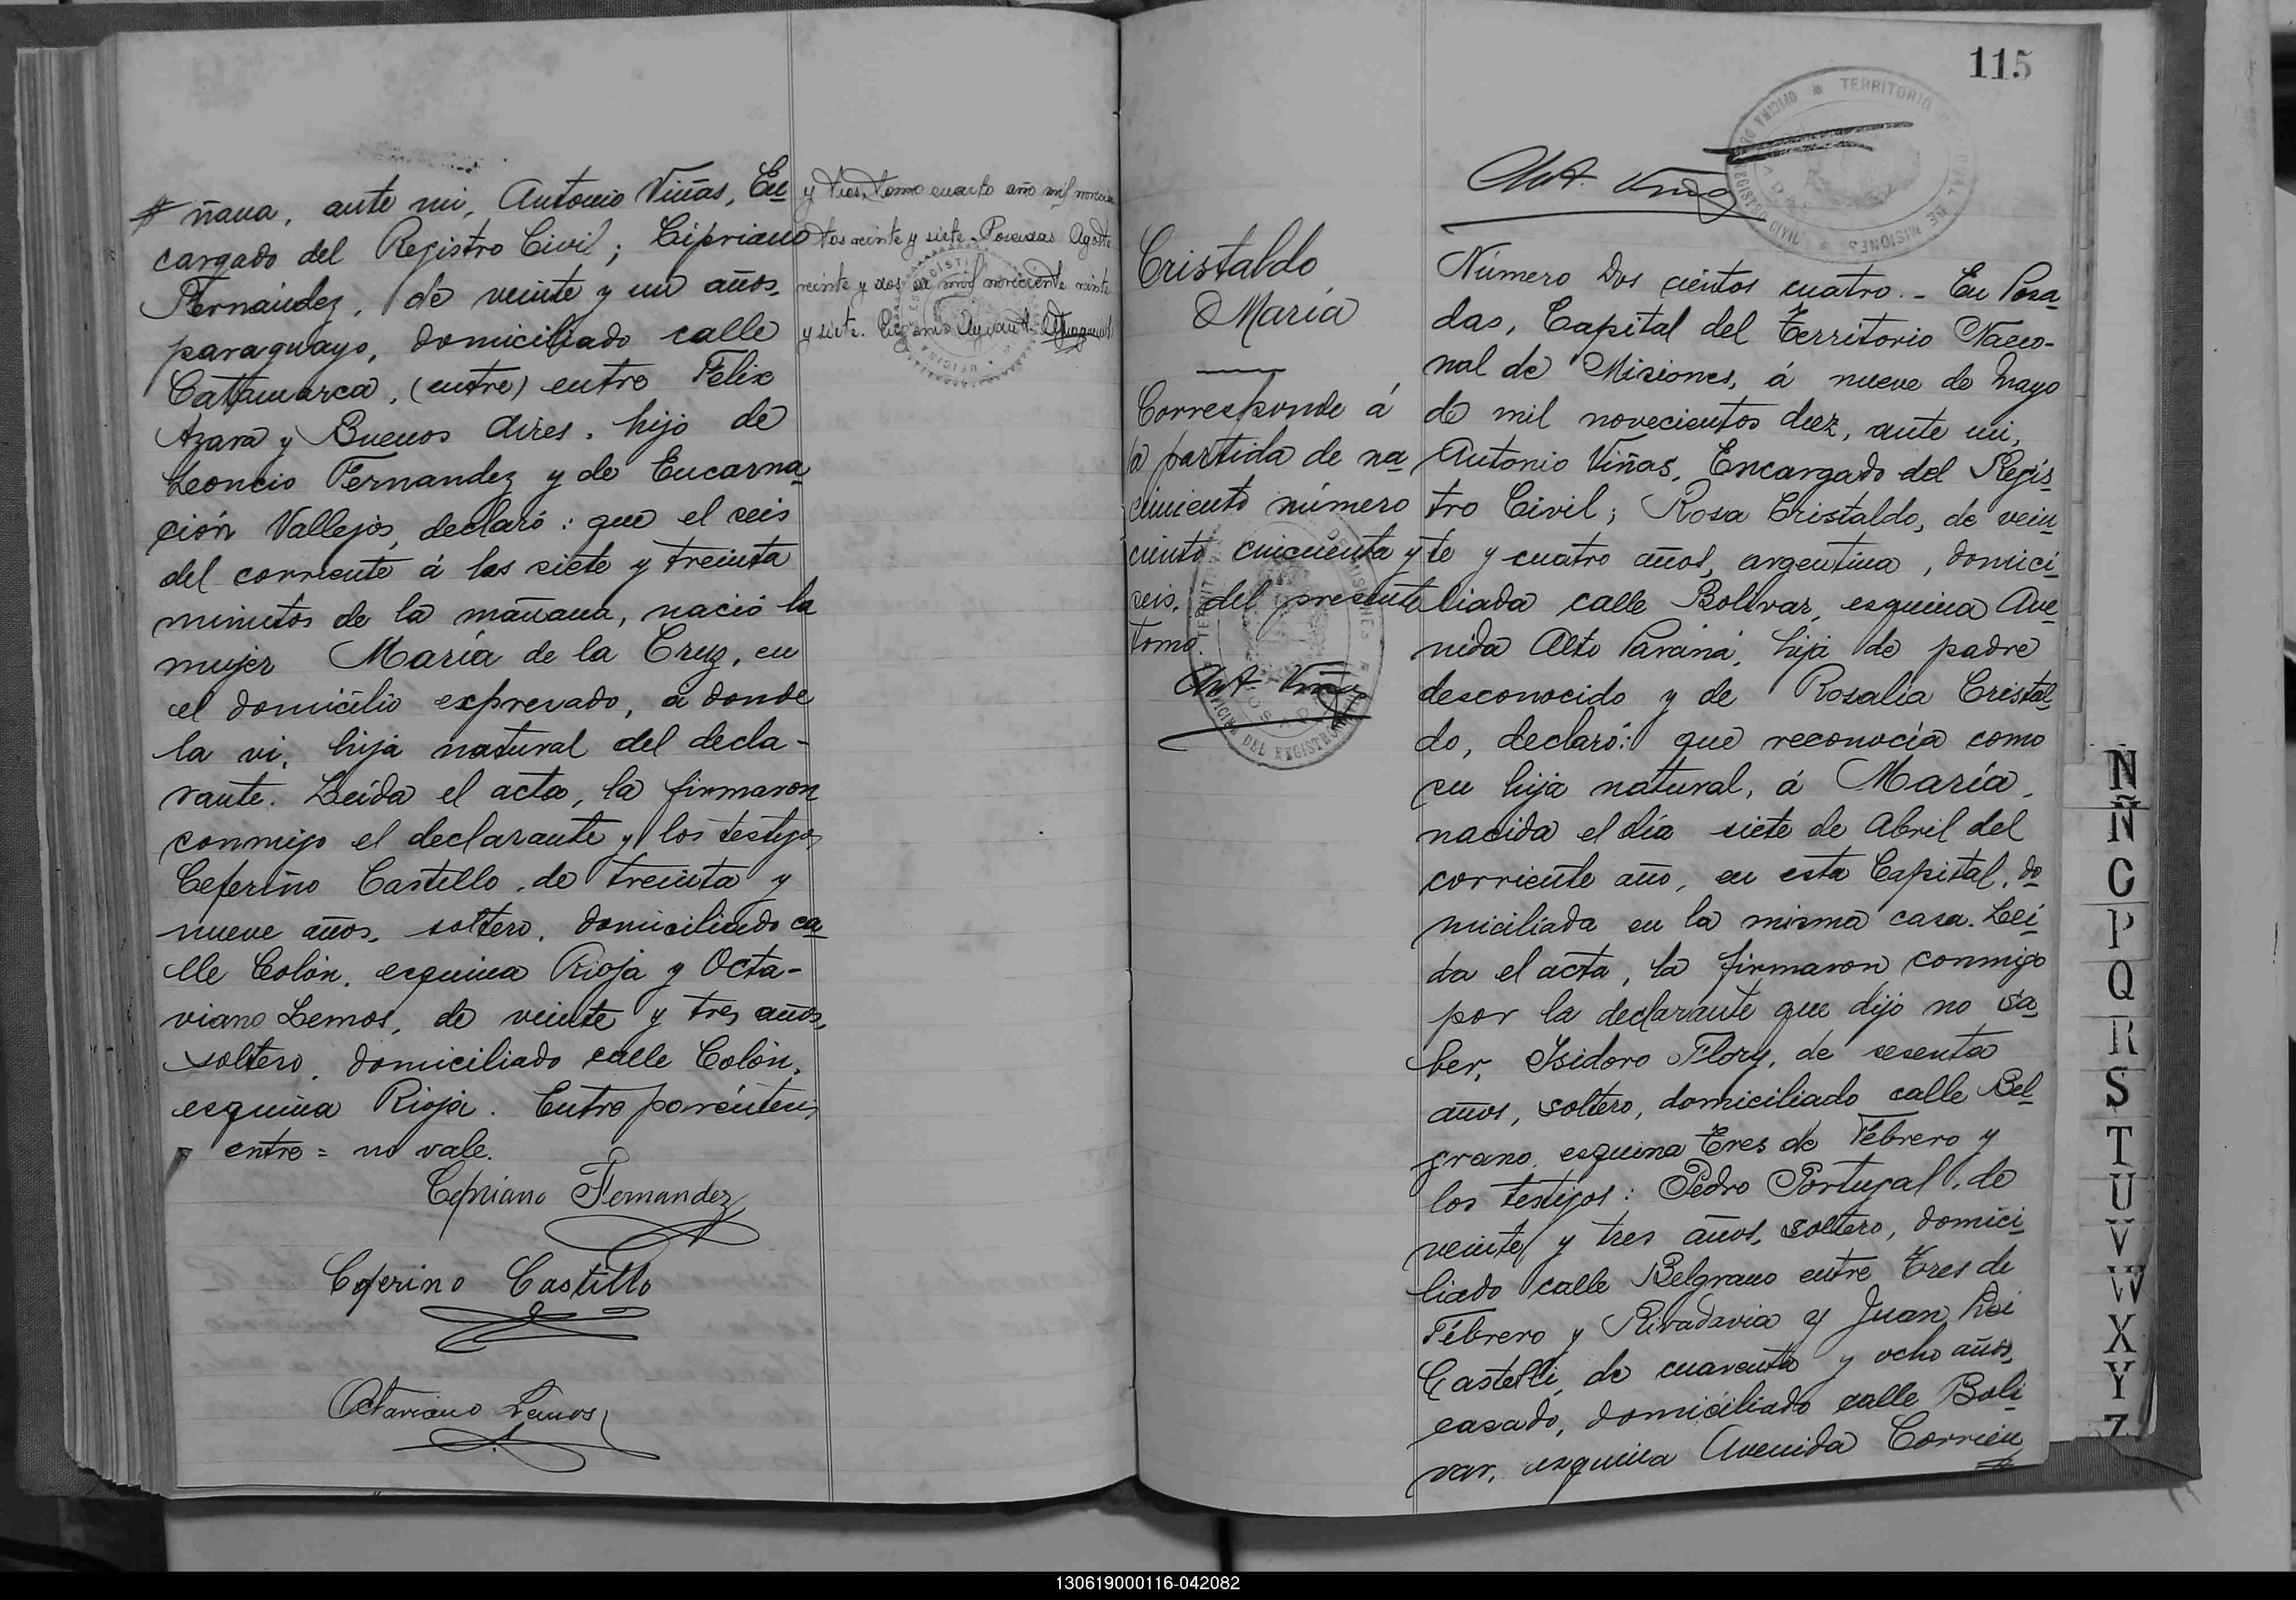 ñana, ante mi, Antonio Viñas, En
cargado del Registro Civil; Cipriano
Fernández, de veinte y un años,
paraguayo, domiciliado calle
Catamarca, (entre) entre Felix
Azara y Buenos Aires, hijo de
Leoncio Fernandez y de Encarna
ción Vallejos, declaró: que el seis
del corriente á las siete y treinta
minutos de la mañana, nació la
mujer María de la Cruz, en
el domicilio expresado, a donde
la vi, hija natural del decla-
rante. Leída el acta, la firmaron
conmigo el declarante y los testigos
Ceferino Castillo, de treinta y
nueve años, soltero, domiciliado ca
lle Colón, esquina Rioja y Octa-
viano Lemos, de veinte y tres años,
soltero, domiciliado calle Colón,
esquina Rioja. Entre paréntesis
entre = no vale.
Cipriano Fernandez
Ceferino Castillo
Octaviano Lemos
y tres, tomo cuarto año mil novecien
tos veinte y siete. Posadas Agosto
veinte y dos de mil novecientos veinte
y siete.
115
TERRITORIO NACIONAL DE MISIONES
OFICINA DEL REGISTRO CIVIL
POSADAS
Ant. Viñas
Cristaldo
María
Corresponde á
la partida de na
cimiento número
ciento cincuenta y
seis, del presente
tomo.
Ant. Viñas
Número dos cientos cuatro.- En Posa
das, Capital del Territorio Nacio-
nal de Misiones, á nueve de Mayo
de mil novecientos diez, ante mi,
Antonio Viñas, Encargado del Regis
tro Civil; Rosa Cristaldo, de vein
te y cuatro años, argentina, domici
liada calle Bolivar, esquina Ave
nida Alto Paraná, hija de padre
desconocido y de Rosalía Cristal
do, declaró: que reconocía como
su hija natural, á María,
nacida el día siete de Abril del
corriente año, en esta Capital, do
miciliada en la misma casa. Leí
da el acta, la firmaron conmigo
por la declarante que dijo no sa
ber, Isidoro Flory, de sesenta
años, soltero, domiciliado calle Bel
grano, esquina Tres de Febrero y
los testigos: Pedro Portugal, de
veinte y tres años, soltero, domici
liado calle Belgrano entre Tres de
Febrero y Rivadavia y Juan
Castelli, de cuarenta y ocho años,
casado, domiciliado calle Boli
var, esquina Avenida Corrien
N
Ñ
O
P
Q
R
S
T
U
V
W
X
Y
Z
130619000116-042082